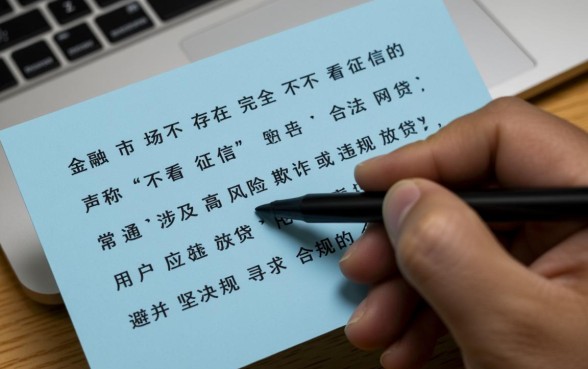 金融 市 场不 存在 完全 不不 看征信的
声称 “不看 征信” 告 · 合法 网贷；
常通、涉及高 风险 欺诈或 违规 放贷》，
用户 应 放贷
避并 坚决规 寻求 合规的